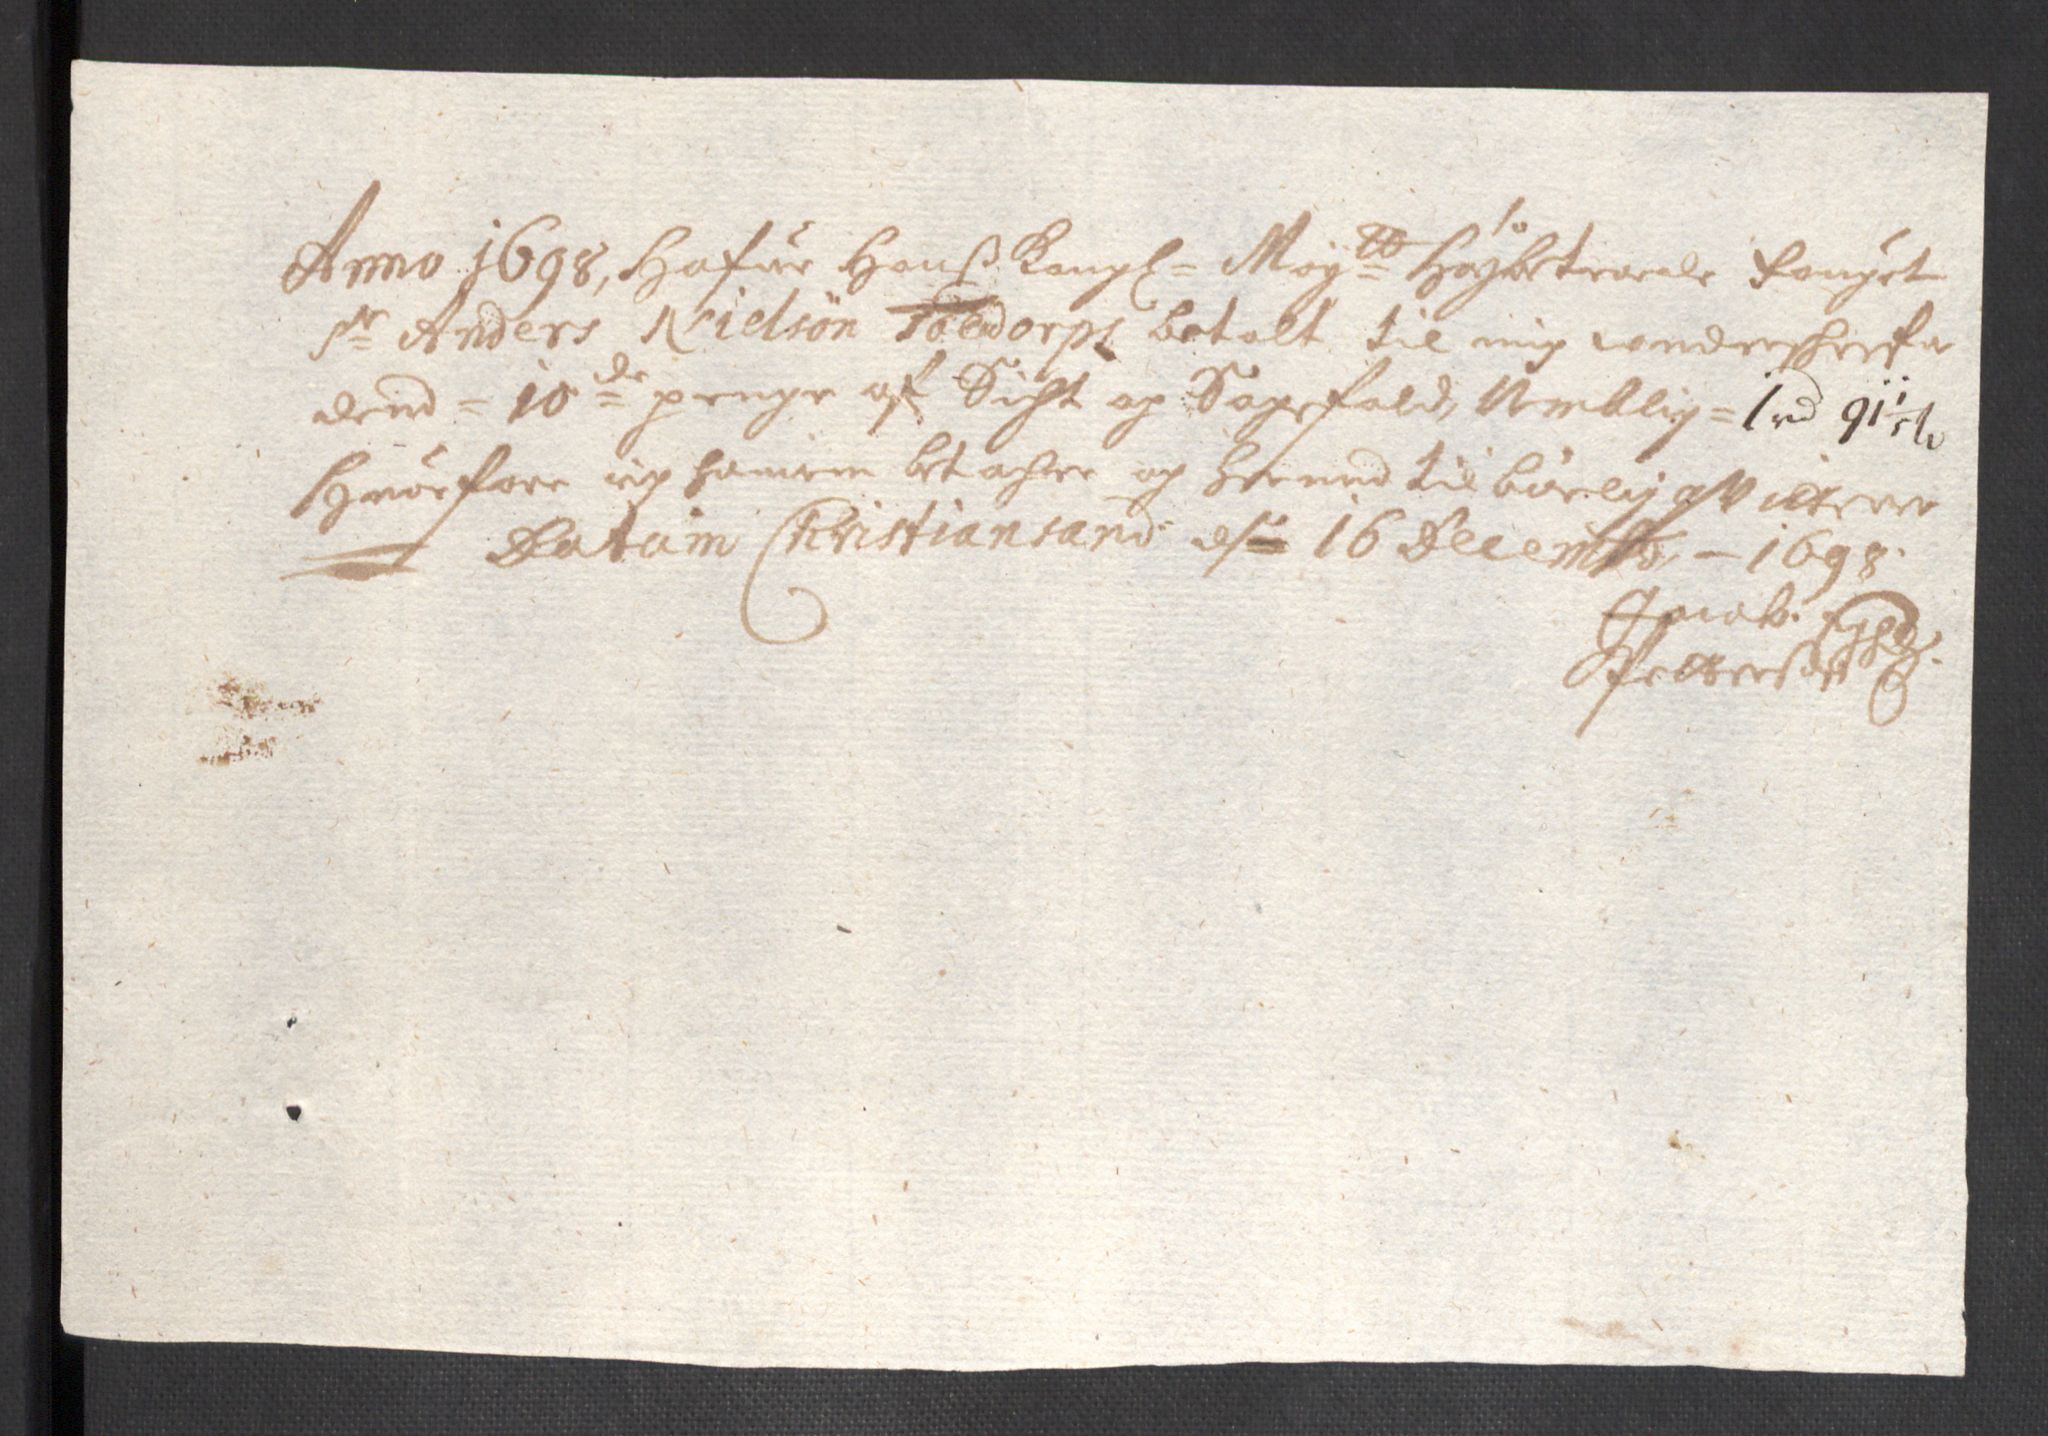 Anno 1698, Hafuer Hans Kongl= Maÿtts Høÿbetroede fouget
Sr Anders Kielsön Toldorph betalt til mig underschrefne
dend = 10de penge af Sicht og Sagefald, Nemblig = 1 rd 91 1/5 s
Huorfore ieg hannem betacher og hermed tilbørlig qvitterer
Datum Christiansand dn 16 Decembr, – 1698.
Jacob
Pettersøn